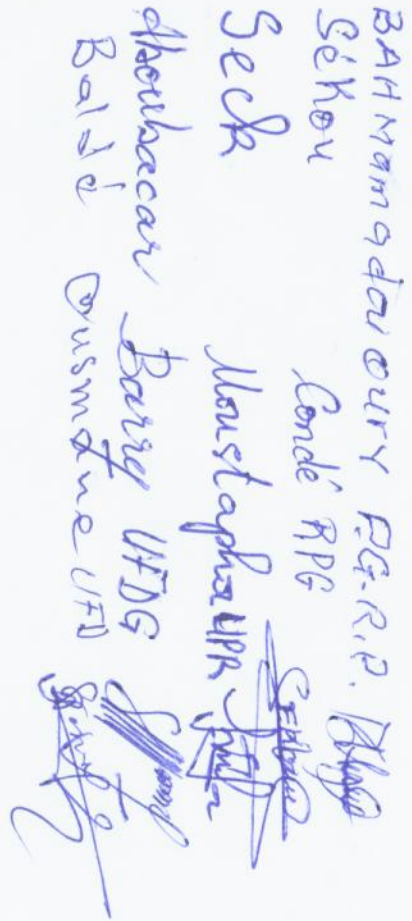 BAH Mamadou OURY P.G.-R.P.
Sékou Condé RPG
Seck Moustapha UPR
Aboubacar Barry UFDG
Baldé Ousmane UFD